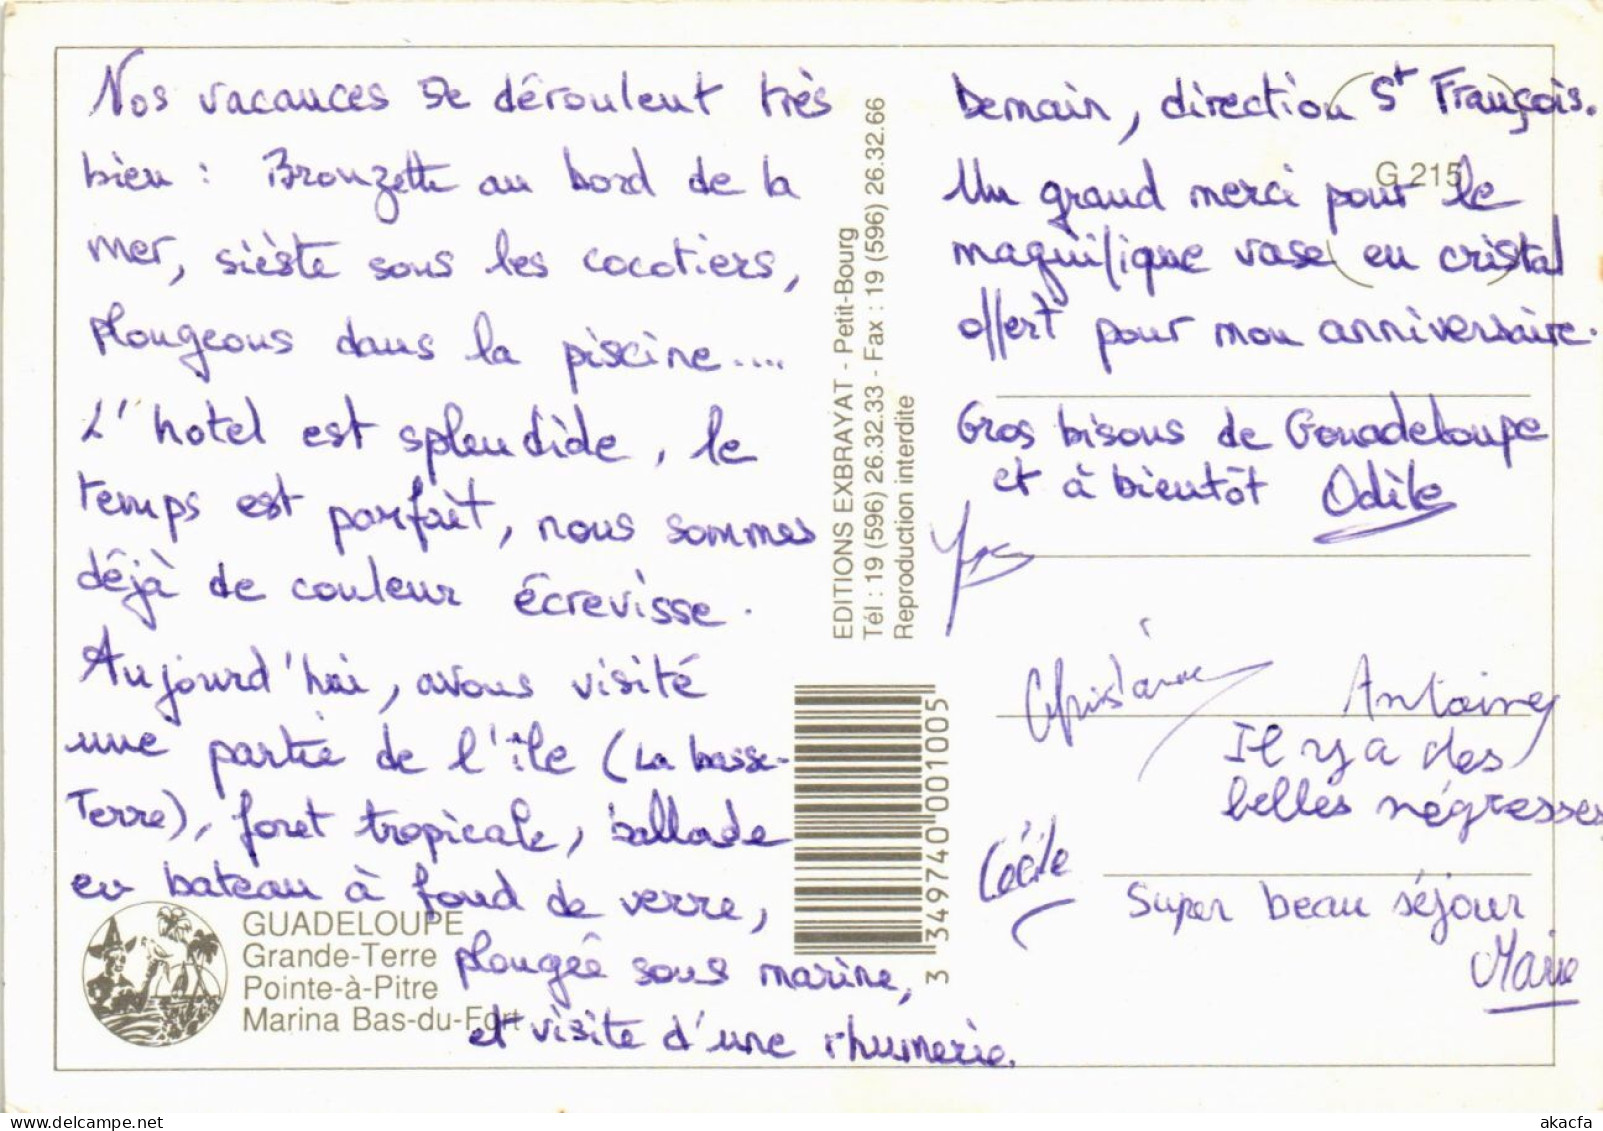 Nos vacances se déroulent très
bien : Bronzette au bord de la
mer, sièste sous les cocotiers,
plongeons dans la piscine....
L'hotel est splendide, le
temps est parfait, nous sommes
déjà de couleur écrevisse.
Aujourd'hui, avons visité
une partie de l'île (La basse-
Terre), foret tropicale, ballade
en bateau à fond de verre,
plongée sous marine,
et visite d'une rhumerie.
GUADELOUPE
Grande-Terre
Pointe-à-Pitre
Marina Bas-du-Fort
EDITIONS EXBRAYAT - Petit-Bourg
Tél : 19 (596) 26.32.33 - Fax : 19 (596) 26.32.66
Reproduction interdite
3 349740 001005
G 215
Demain, direction St François.
Un grand merci pour le
magnifique vase en cristal
offert pour mon anniversaire.
Gros bisous de Gouadeloupe
et à bientôt Odile
Ghislaine
Antoine
Il y a des
belles négresses
Cécile
Super beau séjour
Marie
akacfa